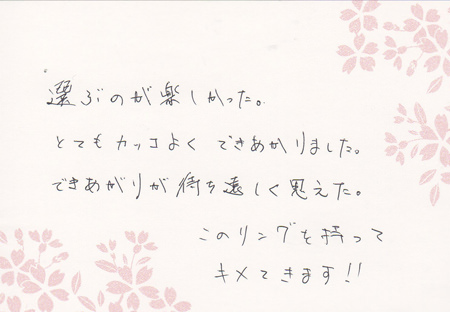 選ぶのが楽しかった。
とてもカッコよくできあがりました。
できあがりが待ち遠しく思えた。
このリングを持って
キメてきます!!